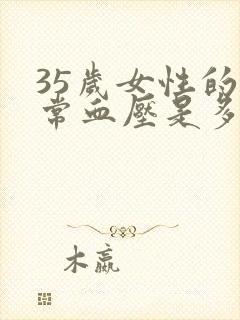 35歲女性的
常血壓是多
木嬴